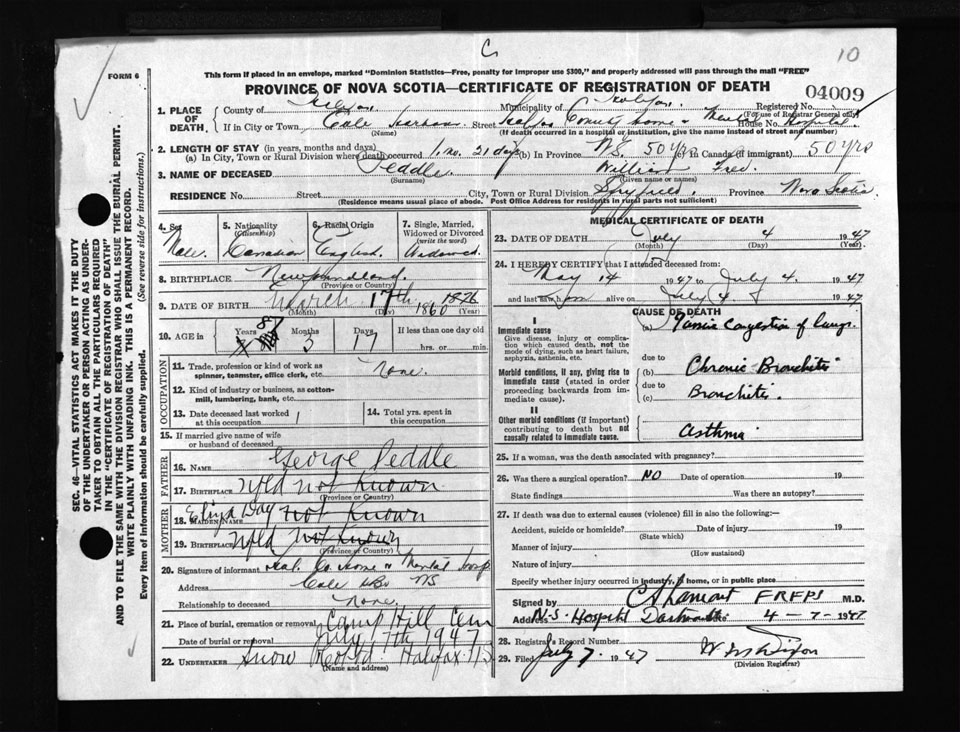 C
10
FORM 6
This form if placed in an envelope, marked "Dominion Statistics—Free, penalty for improper use $300," and properly addressed will pass through the mail "FREE"
PROVINCE OF NOVA SCOTIA—CERTIFICATE OF REGISTRATION OF DEATH
04009
1. PLACE OF DEATH. County of Halifax Municipality of Halifax Registered No.
(For use of Registrar General only)
If in City or Town Cole Harbour Street Halifax County Home & Mental Hospital House No.
(Name) (If death occurred in a hospital or institution, give the name instead of street and number)
2. LENGTH OF STAY (in years, months and days)
(a) In City, Town or Rural Division where death occurred 1 mo. 21 days (b) In Province N.S. 50 Yrs (c) In Canada (if immigrant) 50 Yrs
3. NAME OF DECEASED Peddle William Fred.
(Surname) (Given name or names)
RESIDENCE No. Street City, Town or Rural Division Spryfield Province Nova Scotia
(Residence means usual place of abode. Post Office Address for residents in rural parts not sufficient)
4. Sex Male
5. Nationality (Citizenship) Canadian
6. Racial Origin English
7. Single, Married, Widowed or Divorced (write the word) Widowed
8. BIRTHPLACE Newfoundland
(Province or Country)
9. DATE OF BIRTH March 17th 1860 1876
(Month) (Day) (Year)
10. AGE in Years 87 Months 3 Days 17 If less than one day old
hrs. or min.
OCCUPATION
11. Trade, profession or kind of work as spinner, teamster, office clerk, etc. None.
12. Kind of industry or business, as cotton-mill, lumbering, bank, etc.
13. Date deceased last worked at this occupation
14. Total yrs. spent in this occupation
15. If married give name of wife or husband of deceased
FATHER
16. NAME George Peddle
17. BIRTHPLACE Nfld not known
(Province or Country)
MOTHER
18. MAIDEN NAME Eliza Day not known
19. BIRTHPLACE Nfld not known
(Province or Country)
20. Signature of informant Hal. Co. Home & Mental Hosp
Address Cole Hbr NS
Relationship to deceased None
21. Place of burial, cremation or removal Camp Hill Cem
Date of burial or removal July 7th 1947
22. UNDERTAKER Snow & Co Ltd. Halifax NS
(Name and address)
MEDICAL CERTIFICATE OF DEATH
23. DATE OF DEATH July 4 1947
(Month) (Day) (Year)
24. I HEREBY CERTIFY that I attended deceased from:
May 14 1947 to July 4. 1947
and last saw him alive on July 4 1947
CAUSE OF DEATH
I
Immediate cause
Give disease, injury or complication which caused death, not the mode of dying, such as heart failure, asphyxia, asthenia, etc.
(a) Passive Congestion of lungs.
due to
Morbid conditions, if any, giving rise to immediate cause (stated in order proceeding backwards from immediate cause).
(b) Chronic Bronchitis
due to
(c) Bronchitis.
II
Other morbid conditions (if important) contributing to death but not causally related to immediate cause.
Asthma
25. If a woman, was the death associated with pregnancy?
26. Was there a surgical operation? NO Date of operation 19
State findings Was there an autopsy?
27. If death was due to external causes (violence) fill in also the following:—
Accident, suicide or homicide? Date of injury 19
(State which)
Manner of injury
(How sustained)
Nature of injury
Specify whether injury occurred in industry, in home, or in public place
Signed by FRFPS M.D.
Address N.S. Hospital Dartmouth Date 4-7-1947
28. Registrar's Record Number
29. Filed July 7. 1947 W Dixon
(Division Registrar)
SEC. 46—VITAL STATISTICS ACT MAKES IT THE DUTY
OF THE UNDERTAKER OR PERSON ACTING AS UNDER-
TAKER TO OBTAIN ALL THE PARTICULARS REQUIRED
IN THE "CERTIFICATE OF REGISTRATION OF DEATH"
AND TO FILE THE SAME WITH THE DIVISION REGISTRAR WHO SHALL ISSUE THE BURIAL PERMIT.
WRITE PLAINLY WITH UNFADING INK. THIS IS A PERMANENT RECORD.
Every item of information should be carefully supplied. (See reverse side for instructions.)